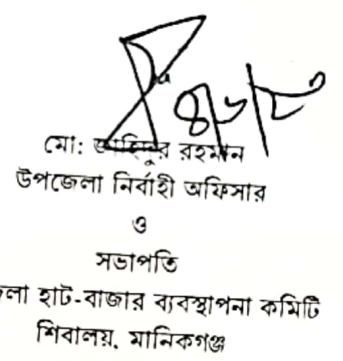 মো: রহমান
উপজেলা নির্বাহী অফিসার
ও
সভাপতি
জেলা হাট-বাজার ব্যবস্থাপনা কমিটি
শিবালয়, মানিকগঞ্জ